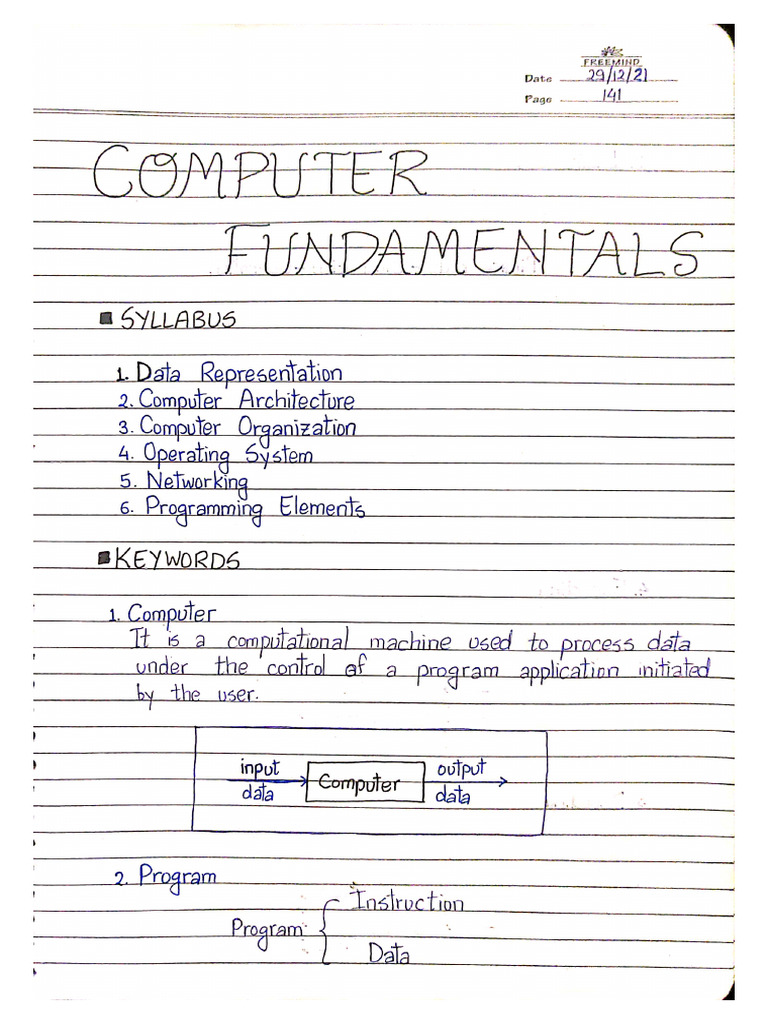 FREEMIND
Date 29/12/21
Page 141
COMPUTER
FUNDAMENTALS
SYLLABUS
1. Data Representation
2. Computer Architecture
3. Computer Organization
4. Operating System
5. Networking
6. Programming Elements
KEYWORDS
1. Computer
It is a computational machine used to process data
under the control of a program application initiated
by the user.
input
data
Computer
output
data
2. Program
Instruction
Program
Data